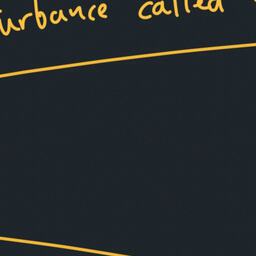 urbance called